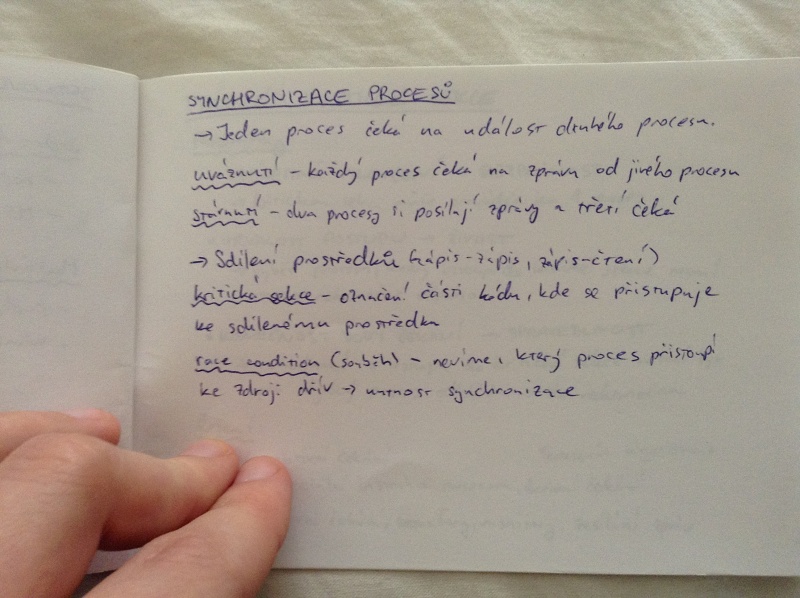 SYNCHRONIZACE PROCESŮ
→ Jeden proces čeká na událost druhého procesu.
uváznutí – každý proces čeká na zprávu od jiného procesu
stárnutí – dva procesy si posílají zprávy a třetí čeká
→ Sdílení prostředků (zápis-zápis, zápis-čtení)
kritická sekce – označení části kódu, kde se přistupuje
ke sdílenému prostředku
race condition (souběh) – nevíme, který proces přistoupí
ke zdroji dřív → nutnost synchronizace